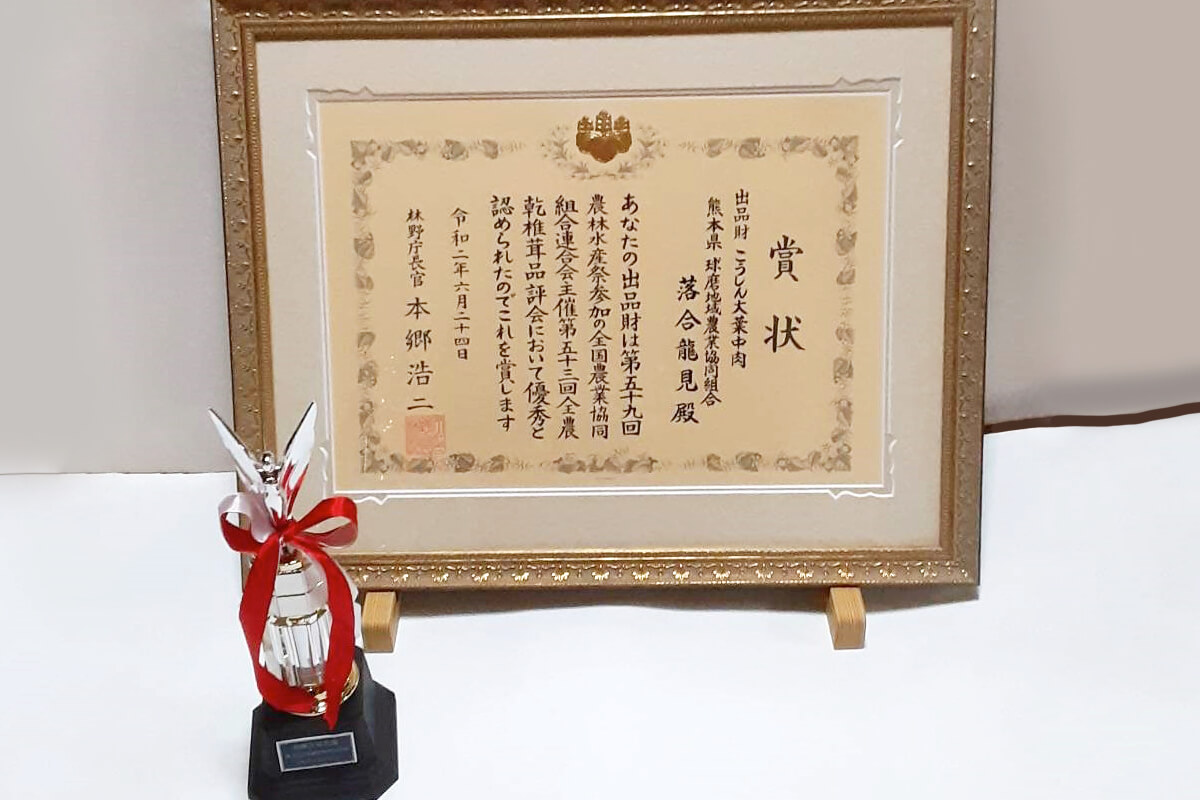 賞状
出品財 こうしん大葉中肉
熊本県 球磨地域農業協同組合
落合龍見殿
あなたの出品財は第五十九回
農林水産祭参加の全国農業協同
組合連合会主催第五十三回全農
乾椎茸品評会において優秀と
認められたのでこれを賞します
令和二年六月二十四日
林野庁長官 本郷浩二